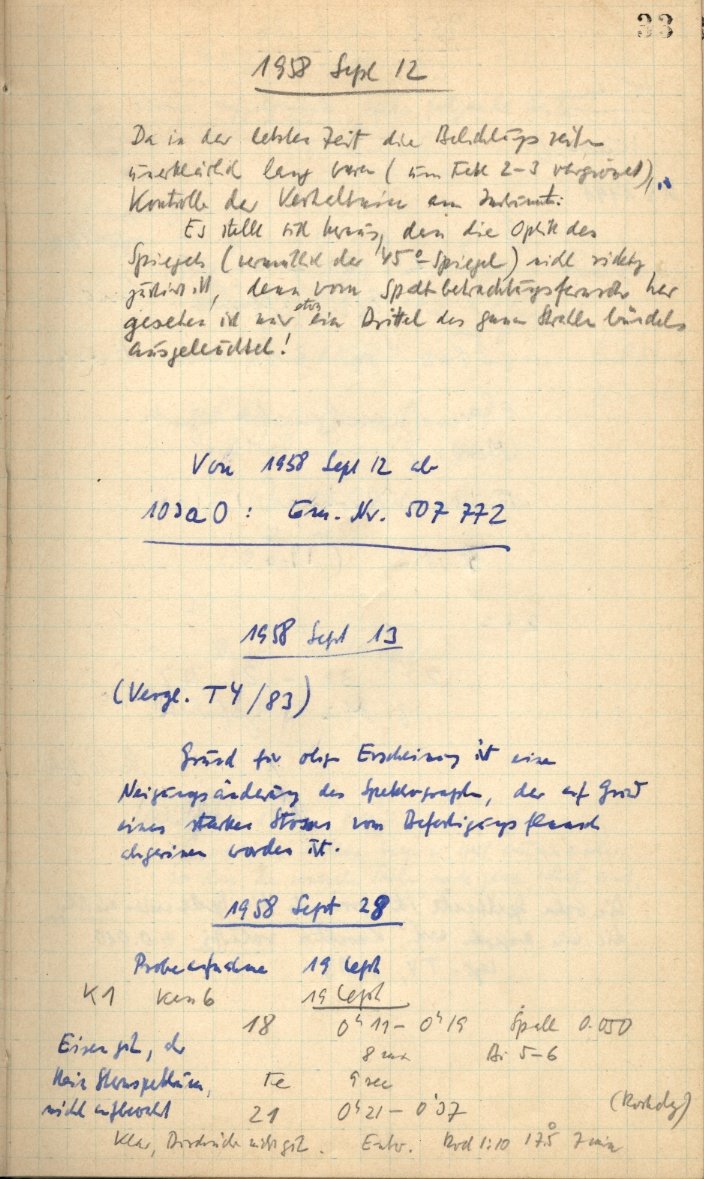 33
1958 Sept 12
Da in der letzten Zeit die Belichtungszeiten
unerklärlich lang waren (um Fakt 2-3 vergrössert),
Kontrolle der Verhältnisse am Instrument:
Es stellt sich heraus, dass die Optik des
Spiegels (vermutlich der 45°-Spiegel) nicht richtig
justiert ist, denn vom Spaltbetrachtungsfernrohr her
gesehen ist nur etwa ein Drittel des ganzen Strahlenbündels
ausgeleuchtet!
Von 1958 Sept 12 ab
103a0 : Em. Nr. 507 772
1958 Sept 13
(Vergl. T4/83)
Grund für obige Erscheinung ist eine
Neigungsänderung des Spektrographen, der auf Grund
eines starken Stosses vom Befestigungsflansch
abgerissen worden ist.
1958 Sept 28
Probeaufnahme 19 Ceph
K1 Kass 6 19 Ceph
18 0h 11 - 0h 19 Spalt 0.050
Eisen gut, da 8 min Bi 5-6
kein Sternspektrum, Fe 9 sec
nicht aufbewahrt 21 0h 21 - 0h 37
Klar, Entw. Rod 1:10 17.5° 7 min